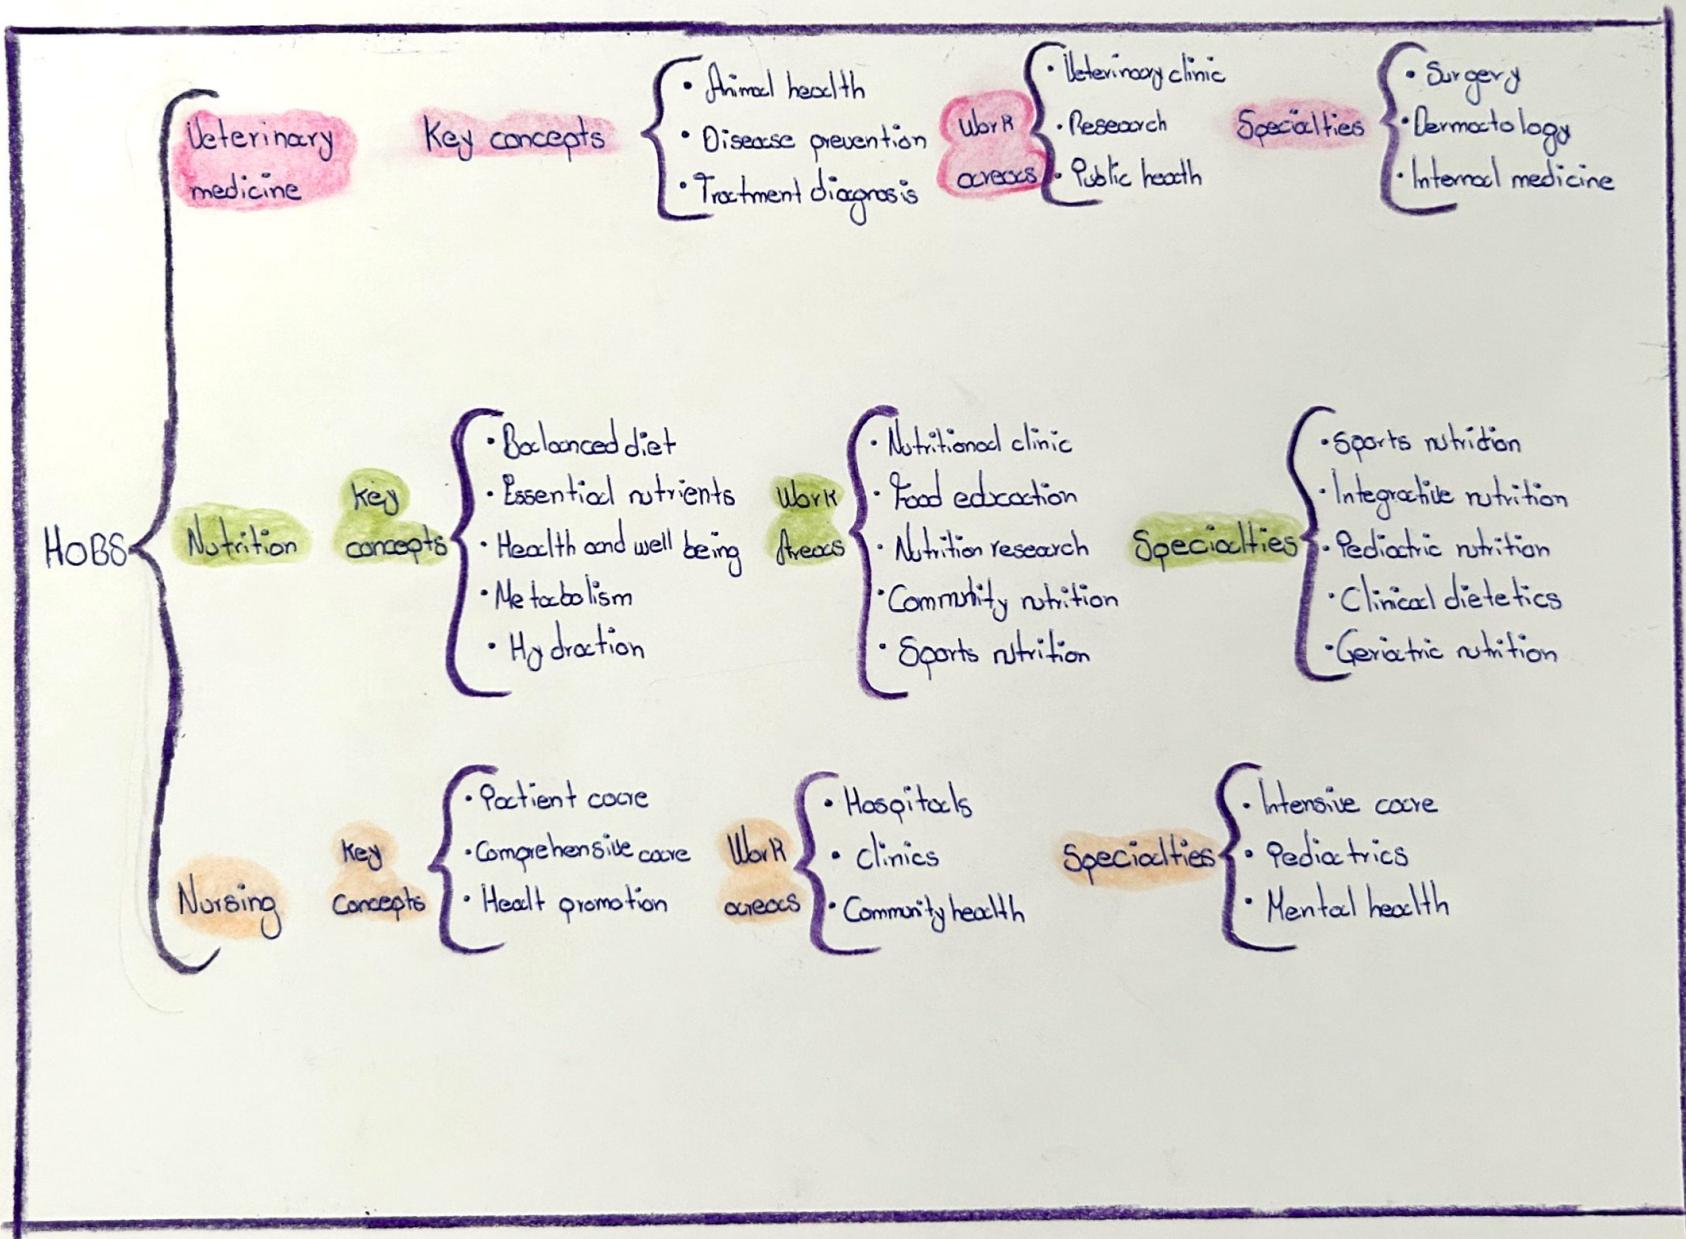 HOBS
Veterinary
medicine
Key concepts
• Animal health
• Disease prevention
• Tractment diagnosis
Work
areas
• Veterinary clinic
• Research
• Public heath
Specialties
• Surgery
• Dermatology
• Internal medicine
Nutrition
Key
concepts
• Balanced diet
• Essential nutrients
• Health and well being
• Metabolism
• Hydration
Work
Areas
• Nutritional clinic
• Food education
• Nutrition research
• Community nutrition
• Sports nutrition
Specialties
• Sports nutrition
• Integrative nutrition
• Pediatric nutrition
• Clinical dietetics
• Geriatric nutrition
Nursing
Key
Concepts
• Patient care
• Comprehensive care
• Healt promotion
Work
areas
• Hospitals
• Clinics
• Community health
Specialties
• Intensive care
• Pediatrics
• Mental health